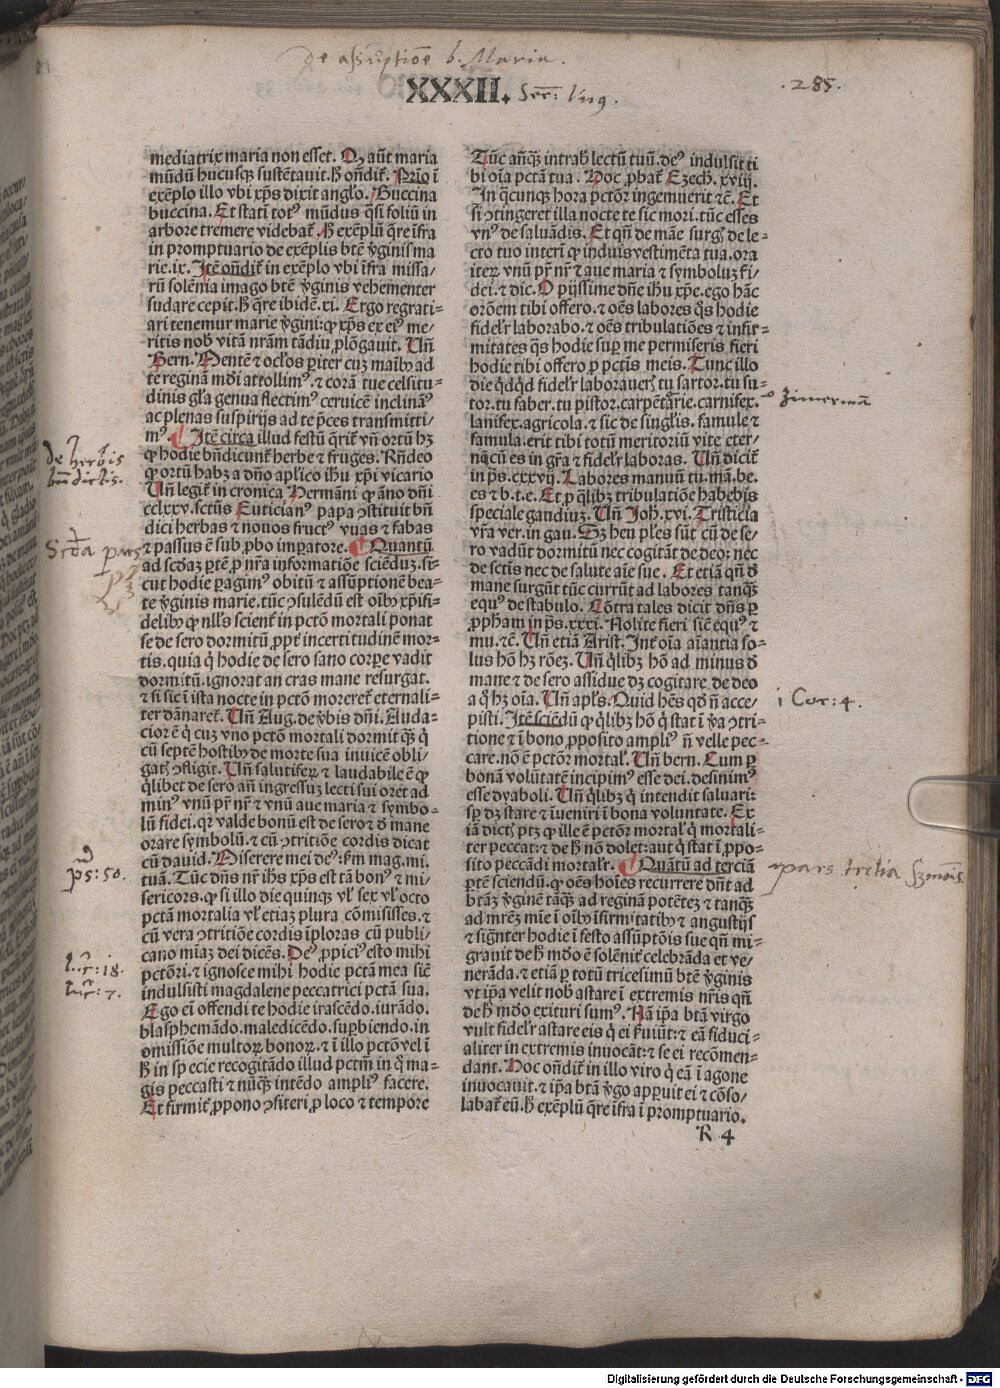 De assūptiōe b. Maria.
XXXII. Ser: 
.285.
mediatrix maria non esset. Qꝫ aūt maria
mūdū hucusqꝫ sustētauit.ꝧ oñdit᷑. Prio ī
exēplo illo vbi xp̄s dixit angl̓o. Buccina
buccina. Et statī totꝰ mūdus q̄si foliū in
arbore tremere videbat᷑. ꝧ exēplū q̄re īfra
in promptuario de exēplis btē ꝟginis ma
rie.ix. Itē oñdit᷑ in exēplo vbi īfra missa/
rū solēnia imago btē ꝟginis vehementer
sudare cepit.ꝧ q̄re ibidē.xi. Ergo regrati/
ari tenemur marie ꝟgini:ꝙ xp̄s ex eiꝰ me/
ritis nob̓ vitā nr̄am tādiu ꝓlōgauit. Uñ
Bern. Mentē ⁊ oc̓los ꝑiter cuꝫ maībꝰ ad
te reginā mūdi attollimꝰ.⁊ corā tue celsitu⸗
dinis gl̓a genua flectimꝰ ceruicē inclināꝰ
ac plenas suspirijs ad te p̄ces transmitti/
mꝰ. ¶ Itē circa illud festū q̄rit᷑ vñ ortū hꝫ
ꝙ hodie bñdicunt᷑ herbe ⁊ fruges. Rñdeo
ꝙ ortū habꝫ a dño aplico ihu xp̄i vicario
Uñ legit᷑ in cronica Hermāni ꝙ āno dñi
cclxxv.sctūs Euticianꝰ papa ꝯstituit bñ
dici herbas ⁊ nouos fructꝰ vuas ⁊ fabas
⁊ passus ē sub ꝓbo imꝑatore. ¶ Quantū
ad scd̓aꝫ ꝑtē ꝓ nr̄a informatiōe sciēduꝫ.si/
cut hodie ꝑagimꝰ obitū ⁊ assūptionē bea/
te ꝟginis marie.tūc ꝯsulēdū est oībꝰ xp̄ifi/
delibꝰ ꝙ nll̓s scient᷑ in pctō mortali ponat
se de sero dormitū ꝓpt᷑ incertitudinē mor/
tis.quia q̇ hodie de sero sano corꝑe vadit
dormitū.ignorat an cras mane resurgat.
⁊ si sic ī ista nocte in pctō moreret᷑ eternali/
ter dānaret᷑. Uñ Aug. de ꝟbis dñi. Auda/
cior ē q̇ cuꝫ vno pctō mortali dormit q̄ꝫ q̇
cū septē hostibꝰ de morte sua inuicē obli/
gat̓ ꝯfligit. Uñ salutiferꝝ ⁊ laudabile ē ꝙ
q̇libet de sero añ ingressuꝫ lecti sui oret ad
minꝰ vnū pr̄ nr̄ ⁊ vnū aue maria ⁊ symbo/
lū fidei.qꝛ valde bonū est de sero ⁊ d̓ mane
orare symbolū.⁊ cū ꝯtritiōe cordis dicat
cū dauid. Miserere mei deꝰ:km̄ mag.mi.
tuā. Tūc dn̄s nr̄ ih̄s xp̄s est tā bonꝰ ⁊ mi/
sericors.ꝙ si illo die quinqꝫ vl̓ sex vl̓ octo
pctā mortalia vl̓ etiaꝫ plura cōmisisses.⁊
cū vera ꝯtritiōe cordis īploras cū publi/
cano mīaꝫ dei dicēs. Deꝰ ꝓpiciꝰ esto mihi
pctōri.⁊ ignosce mihi hodie pctā mea sicē
indulsisti magdalene peccatrici pctā sua.
Ego ei offendi te hodie irascēdo.iurādo.
blasphemādo.maledicēdo.suꝑbiendo.in
omissiōe multoꝝ bonoꝝ.⁊ ī illo pctō vel ī
ꝧ in specie recogitādo illud pctm̄ in q̄ ma⸗
gis peccasti ⁊ nūqꝫ intēdo ampliꝰ facere.
Et firmit᷑ ꝓpono ꝯfiteri ꝓ loco ⁊ tempore
de herbis
bn̄dictis.
Scd̄a pars
ps:50.
luc:18.
luc:7.
Tūc añq̄ꝫ intrab̓ lectū tuū.deꝰ indulsit ti
bi oīa pctā tua. Hoc ꝓbat᷑ Ezech.xviij.
In q̄cunqꝫ hora pctōr ingemuerit ⁊c. Et
si ꝯtingeret illa nocte te sic mori.tūc esses
vnꝰ de saluādis. Et qñ de māe surgꝭ de le⸗
cto tuo interi ꝙ induis vestimēta tua.ora
iteꝝ vnū pr̄ nr̄ ⁊ aue maria ⁊ symboluꝫ fi/
dei.⁊ dic. O pijssime dn̄e ihu xp̄e.ego hāc
orōem tibi offero.⁊ oēs labores q̄s hodie
fidelr̓ laborabo.⁊ oēs tribulatiōes ⁊ infir⸗
mitates q̄s hodie suꝑ me permiseris fieri
hodie tibi offero ꝓ pctis meis. Tunc illo
die q̇dq̇d fidelr̓ laboraueꝝ tu sartor.tu su⸗
tor.tu faber.tu pistor.carpētarie.carnifex.
lanifex.agricola.⁊ sic de singl̓is.famule ⁊
famula.erit tibi totū meritoriū vite eter/
nq̇cū es in gr̄a ⁊ fidelr̓ laboras. Uñ dicit᷑
in ps̄.cxxvij. Labores manuū tu.mā.be.
es ⁊ b.t.e. Et ꝓ q̇libꝫ tribulatiōe habebis
speciale gaudiuꝫ. Uñ Joh̓.xvi. Tristicia
vr̄a ver.in gau. Sꝫ heu ples sūt cū de se/
ro vadūt dormitū nec cogitāt de deo: nec
de sctīs nec de salute aīe sue. Et etiā qñ d̓
mane surgūt tūc currūt ad labores tanq̄ꝫ
equꝰ de stabulo. Cōtra tales dicit dn̄s ꝑ
ꝓpham in ps̄.xxxi. Nolite fieri sicē equꝰ ⁊
mu.⁊c. Uñ etiā Arist. Int᷑ oīa aīantia so⸗
lus hō hꝫ rōeꝫ. Uñ q̇libꝫ hō ad minus d̓
mane ⁊ de sero assidue dꝫ cogitare de deo
a q̇ hꝫ oīa. Uñ apl̓s. Quid hēs qd̓ ñ acce/
pisti. Itē sciēdū ꝙ q̇libꝫ hō q̇ stat ī ꝟa ꝯtri⸗
tione ⁊ ī bono ꝓposito ampliꝰ ñ velle pec⸗
care.nō ē pctōr mortal̓. Uñ bern. Cum ꝑ
bonā volūtatē incipimꝰ esse dei.desinimꝰ
esse dyaboli. Uñ q̇libꝫ q̇ intendit saluari:
sp̄ dꝫ stare ⁊ īueniri ī bona voluntate. Ex
iā dict̓ ptꝫ ꝙ ille ē pctōr mortal̓ q̇ mortali⸗
ter peccat:⁊ de ꝧ nō dolet:aut q̇ stat ī ꝓpo⸗
sito peccādi mortalr̓. ¶ Quātū ad terciā
ꝑtē sciendū.ꝙ oēs hoīes recurrere dn̄t ad
btāꝫ ꝟginē tāq̄ꝫ ad reginā potēteꝫ ⁊ tanq̄ꝫ
ad mr̄eꝫ mīe ī oībꝰ īfirmitatibꝰ ⁊ angustijs
⁊ signāter hodie ī festo assūptōis sue qñ mi⸗
grauit de ꝧ mūdo ē solēnit᷑ celebrāda et ve/
nerāda.⁊ etiā ꝑ totū tricesimū btē ꝟginis
vt ip̄a velit nob̓ astare ī extremis nr̄is qñ
de ꝧ mūdo exituri sumꝰ. Nā ip̄a btā virgo
vult fidelr̓ astare eis q̇ ei ẜuiūt:⁊ eā fiduci⸗
aliter in extremis inuocāt:⁊ se ei recōmen⸗
dant. Hoc oñdit᷑ in illo viro q̇ eā ī agone
inuocauit.⁊ ip̄a btā ꝟgo apꝑuit ei ⁊ cōso/
labat᷑ eū.ꝧ exēplū q̄re īfra ī promptuario.
R 4
zimermā
i Cor:4.
pars tertia s̄monis.
Digitalisierung gefördert durch die Deutsche Forschungsgemeinschaft - DFG